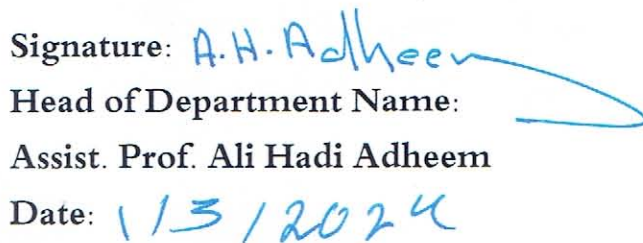 Signature: A.H. Adheem
Head of Department Name:
Assist. Prof. Ali Hadi Adheem
Date: 1/3/2024